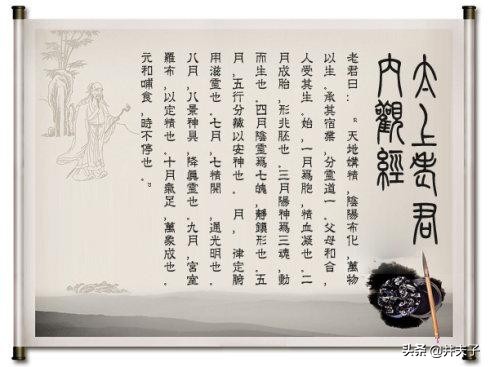 太上老君
內觀經
老君曰：“天地媾精，陰陽布化，萬物
以生。承其宿業，分靈道一。父母和合，
人受其生。始，一月爲胞，精血凝也。二
月成胎，形兆胚也。三月陽神爲三魂，動
而生也。四月陰靈爲七魄，靜鎮形也。五
月，五行分藏以安神也。 月， 律定腑
用滋靈也。七月，七精開 ，通光明也。
八月，八景神具，降眞靈也。九月，宮室
羅布，以定精也。十月氣足，萬象成也。
元和哺食，時不停也。”
头条 @井夫子